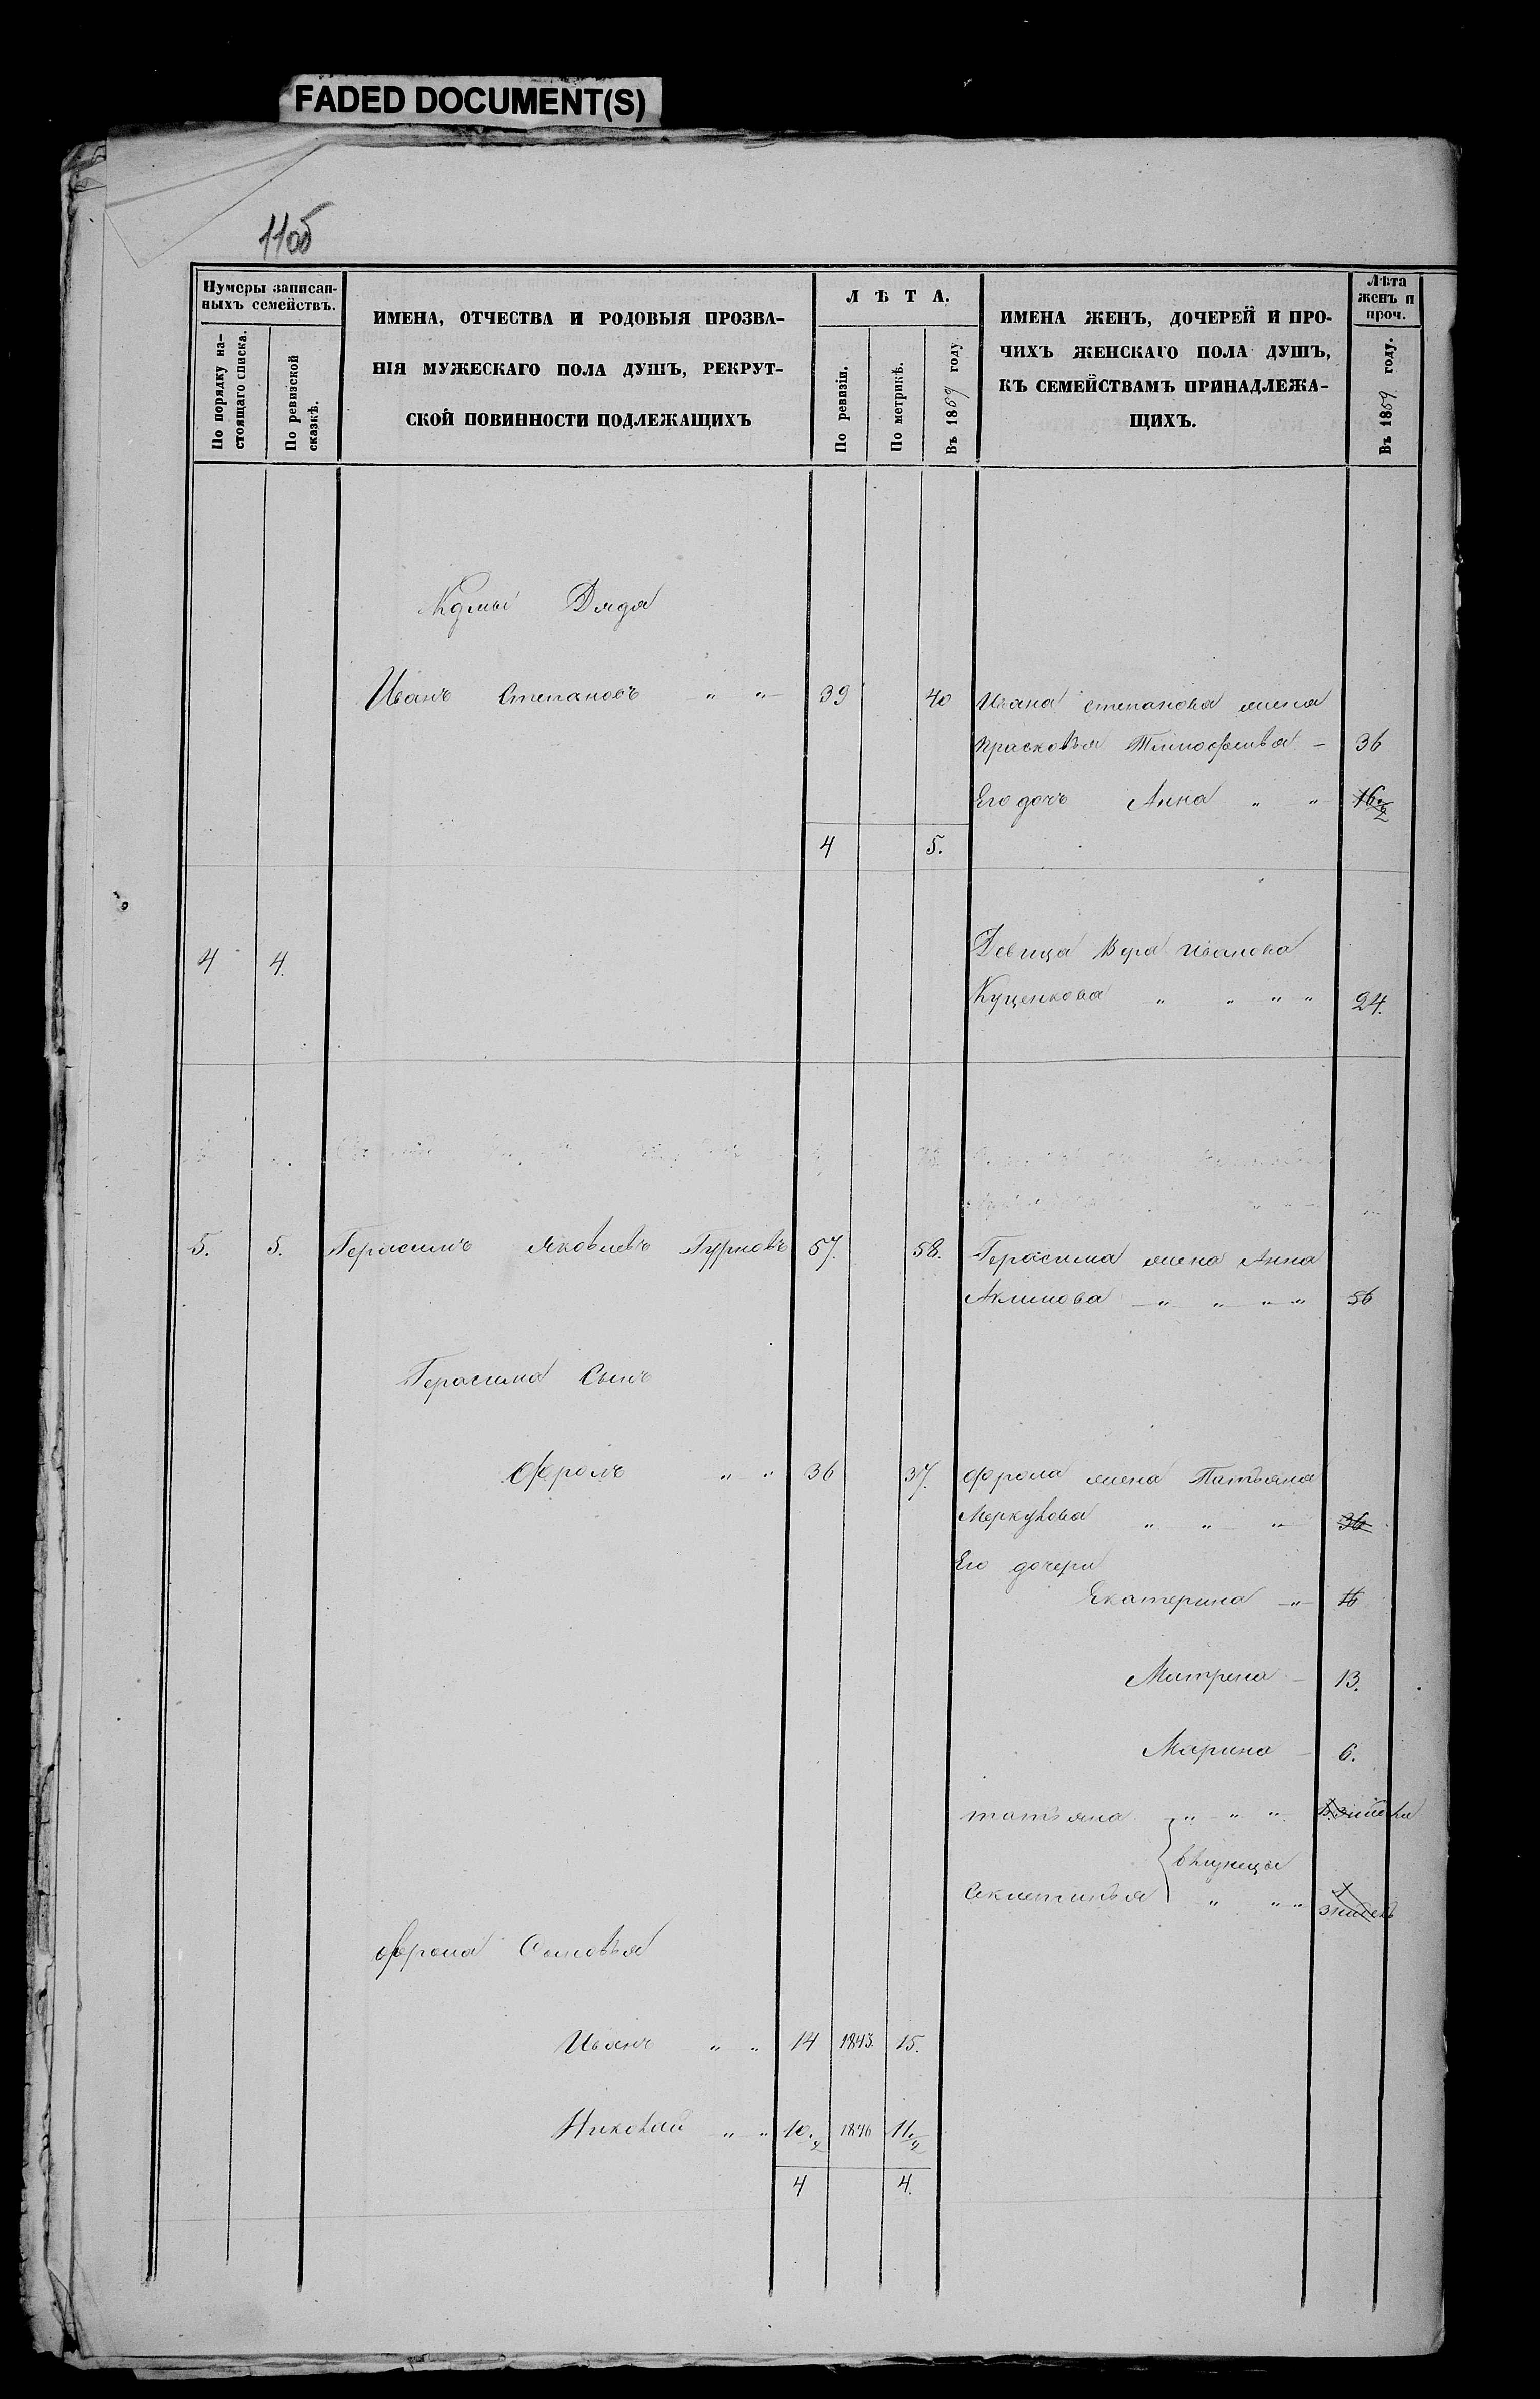 FADED DOCUMENT(S)
110б
Нумеры записан-
ныхъ семействъ.
По порядку на-
стоящаго списка.
По ревизской
сказкѣ.
ИМЕНА, ОТЧЕСТВА И РОДОВЫЯ ПРОЗВА-
НІЯ МУЖЕСКАГО ПОЛА ДУШЪ, РЕКРУТ-
СКОЙ ПОВИННОСТИ ПОДЛЕЖАЩИХЪ
ЛѢТА.
По ревизіи.
По метрикѣ.
Въ 1859 году
ИМЕНА ЖЕНЪ, ДОЧЕРЕЙ И ПРО-
ЧИХЪ ЖЕНСКАГО ПОЛА ДУШЪ,
КЪ СЕМЕЙСТВАМЪ ПРИНАДЛЕЖА-
ЩИХЪ.
Лѣта
женъ и
проч.
Въ 1859 году.
Дядя
Иванъ Степановъ " " 39 40 Ивана Степанова жена
Прасковья Тимофеива - 36
Его дочь Анна " " 16
4 5.
4 4. Девица Вера Иванова
Куценкова " " " " 24.
5. 5. Герасимъ Яковлевъ Гурновъ 57. 58. Герасима жена Анна
Акимова " " " " 56
Герасима Сынъ
Фролъ " " 36 37. Фрола жена Татьяна
Меркулова " " " 36
Его дочери
Екатерина " 16
Матрена - 13.
Марина - 6.
татьяна " " "
внучицы
" " "
Фрола Сыновья
Иванъ " " 14 1843. 15.
Николай " " 10 1/2 1846 11 1/2
4 4.